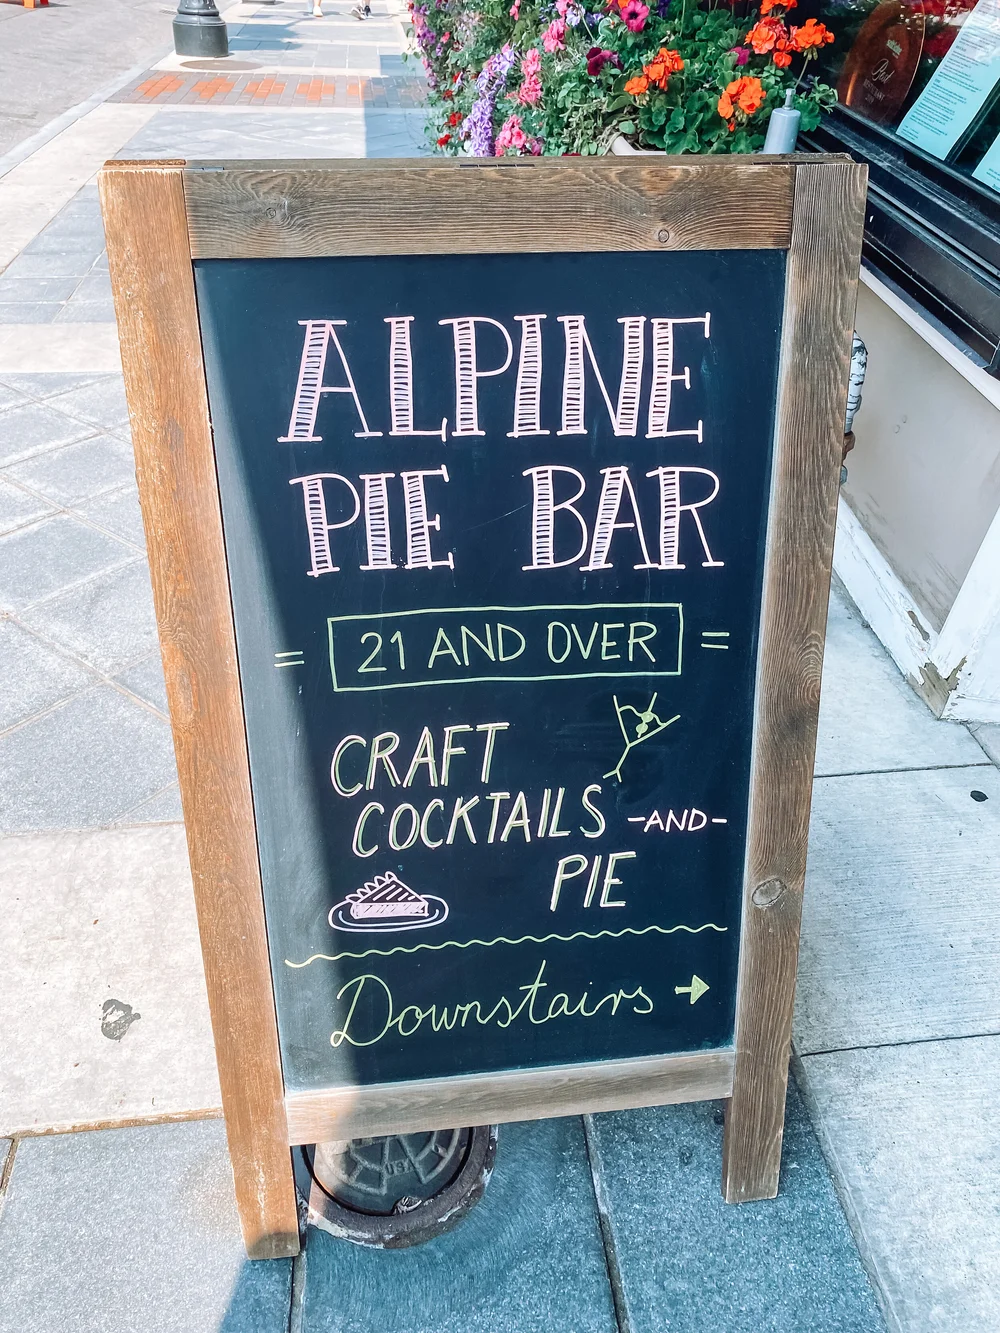 ALPINE
PIE BAR
= 21 AND OVER =
CRAFT
COCKTAILS -AND-
PIE
Downstairs →
USA